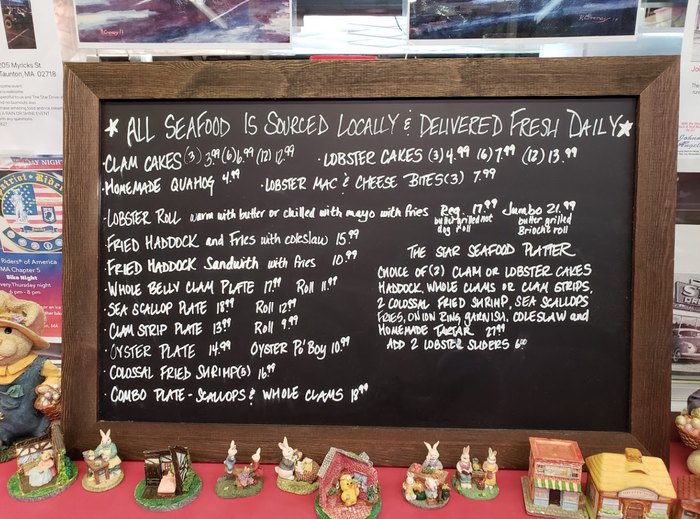 205 Myricks St
Taunton, MA 02718
★ ALL SEAFOOD IS SOURCED LOCALLY & DELIVERED FRESH DAILY ★
• CLAM CAKES (3) 3.99 (6) 6.99 (12) 12.99 • LOBSTER CAKES (3) 4.99 (6) 7.99 (12) 13.99
• HOMEMADE QUAHOG 4.99 • LOBSTER MAC & CHEESE BITES (3) 7.99
• LOBSTER ROLL warm with butter or chilled with mayo with fries Reg. 17.99 Jumbo 21.99
butter grilled hot dog roll
butter grilled Brioche roll
• FRIED HADDOCK and FRIES with coleslaw 15.99
• FRIED HADDOCK Sandwith with fries 10.99
• WHOLE BELLY CLAM PLATE 17.99 Roll 11.99
• SEA SCALLOP PLATE 18.99 Roll 12.99
• CLAM STRIP PLATE 13.99 Roll 9.99
• OYSTER PLATE 14.99 OYSTER PO'BOY 10.99
• COLOSSAL FRIED SHRIMP(8) 16.99
• COMBO PLATE - SCALLOPS & WHOLE CLAMS 18.99
THE STAR SEAFOOD PLATTER
CHOICE OF (2) CLAM OR LOBSTER CAKES
HADDOCK, WHOLE CLAMS OR CLAM STRIPS,
2 COLOSSAL FRIED SHRIMP, SEA SCALLOPS
FRIES, ONION RING GARNISH, COLESLAW and
HOMEMADE TARTAR 27.99
ADD 2 LOBSTER SLIDERS 6.00
Patriot Riders
Riders® of America
MA Chapter 5
Bike Night
every Thursday night
6 pm - 8 pm